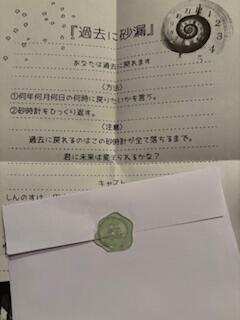 『過去に砂漏』
あなたは過去に戻れます
〈方法〉
①何年何月何日の何時に戻りたいかを言う。
②砂時計をひっくり返す。
〈注意〉
過去に戻れるのはこの砂時計が全て落ちるまで。
君に未来は変えられるかな？
キャスト
しんのすけ